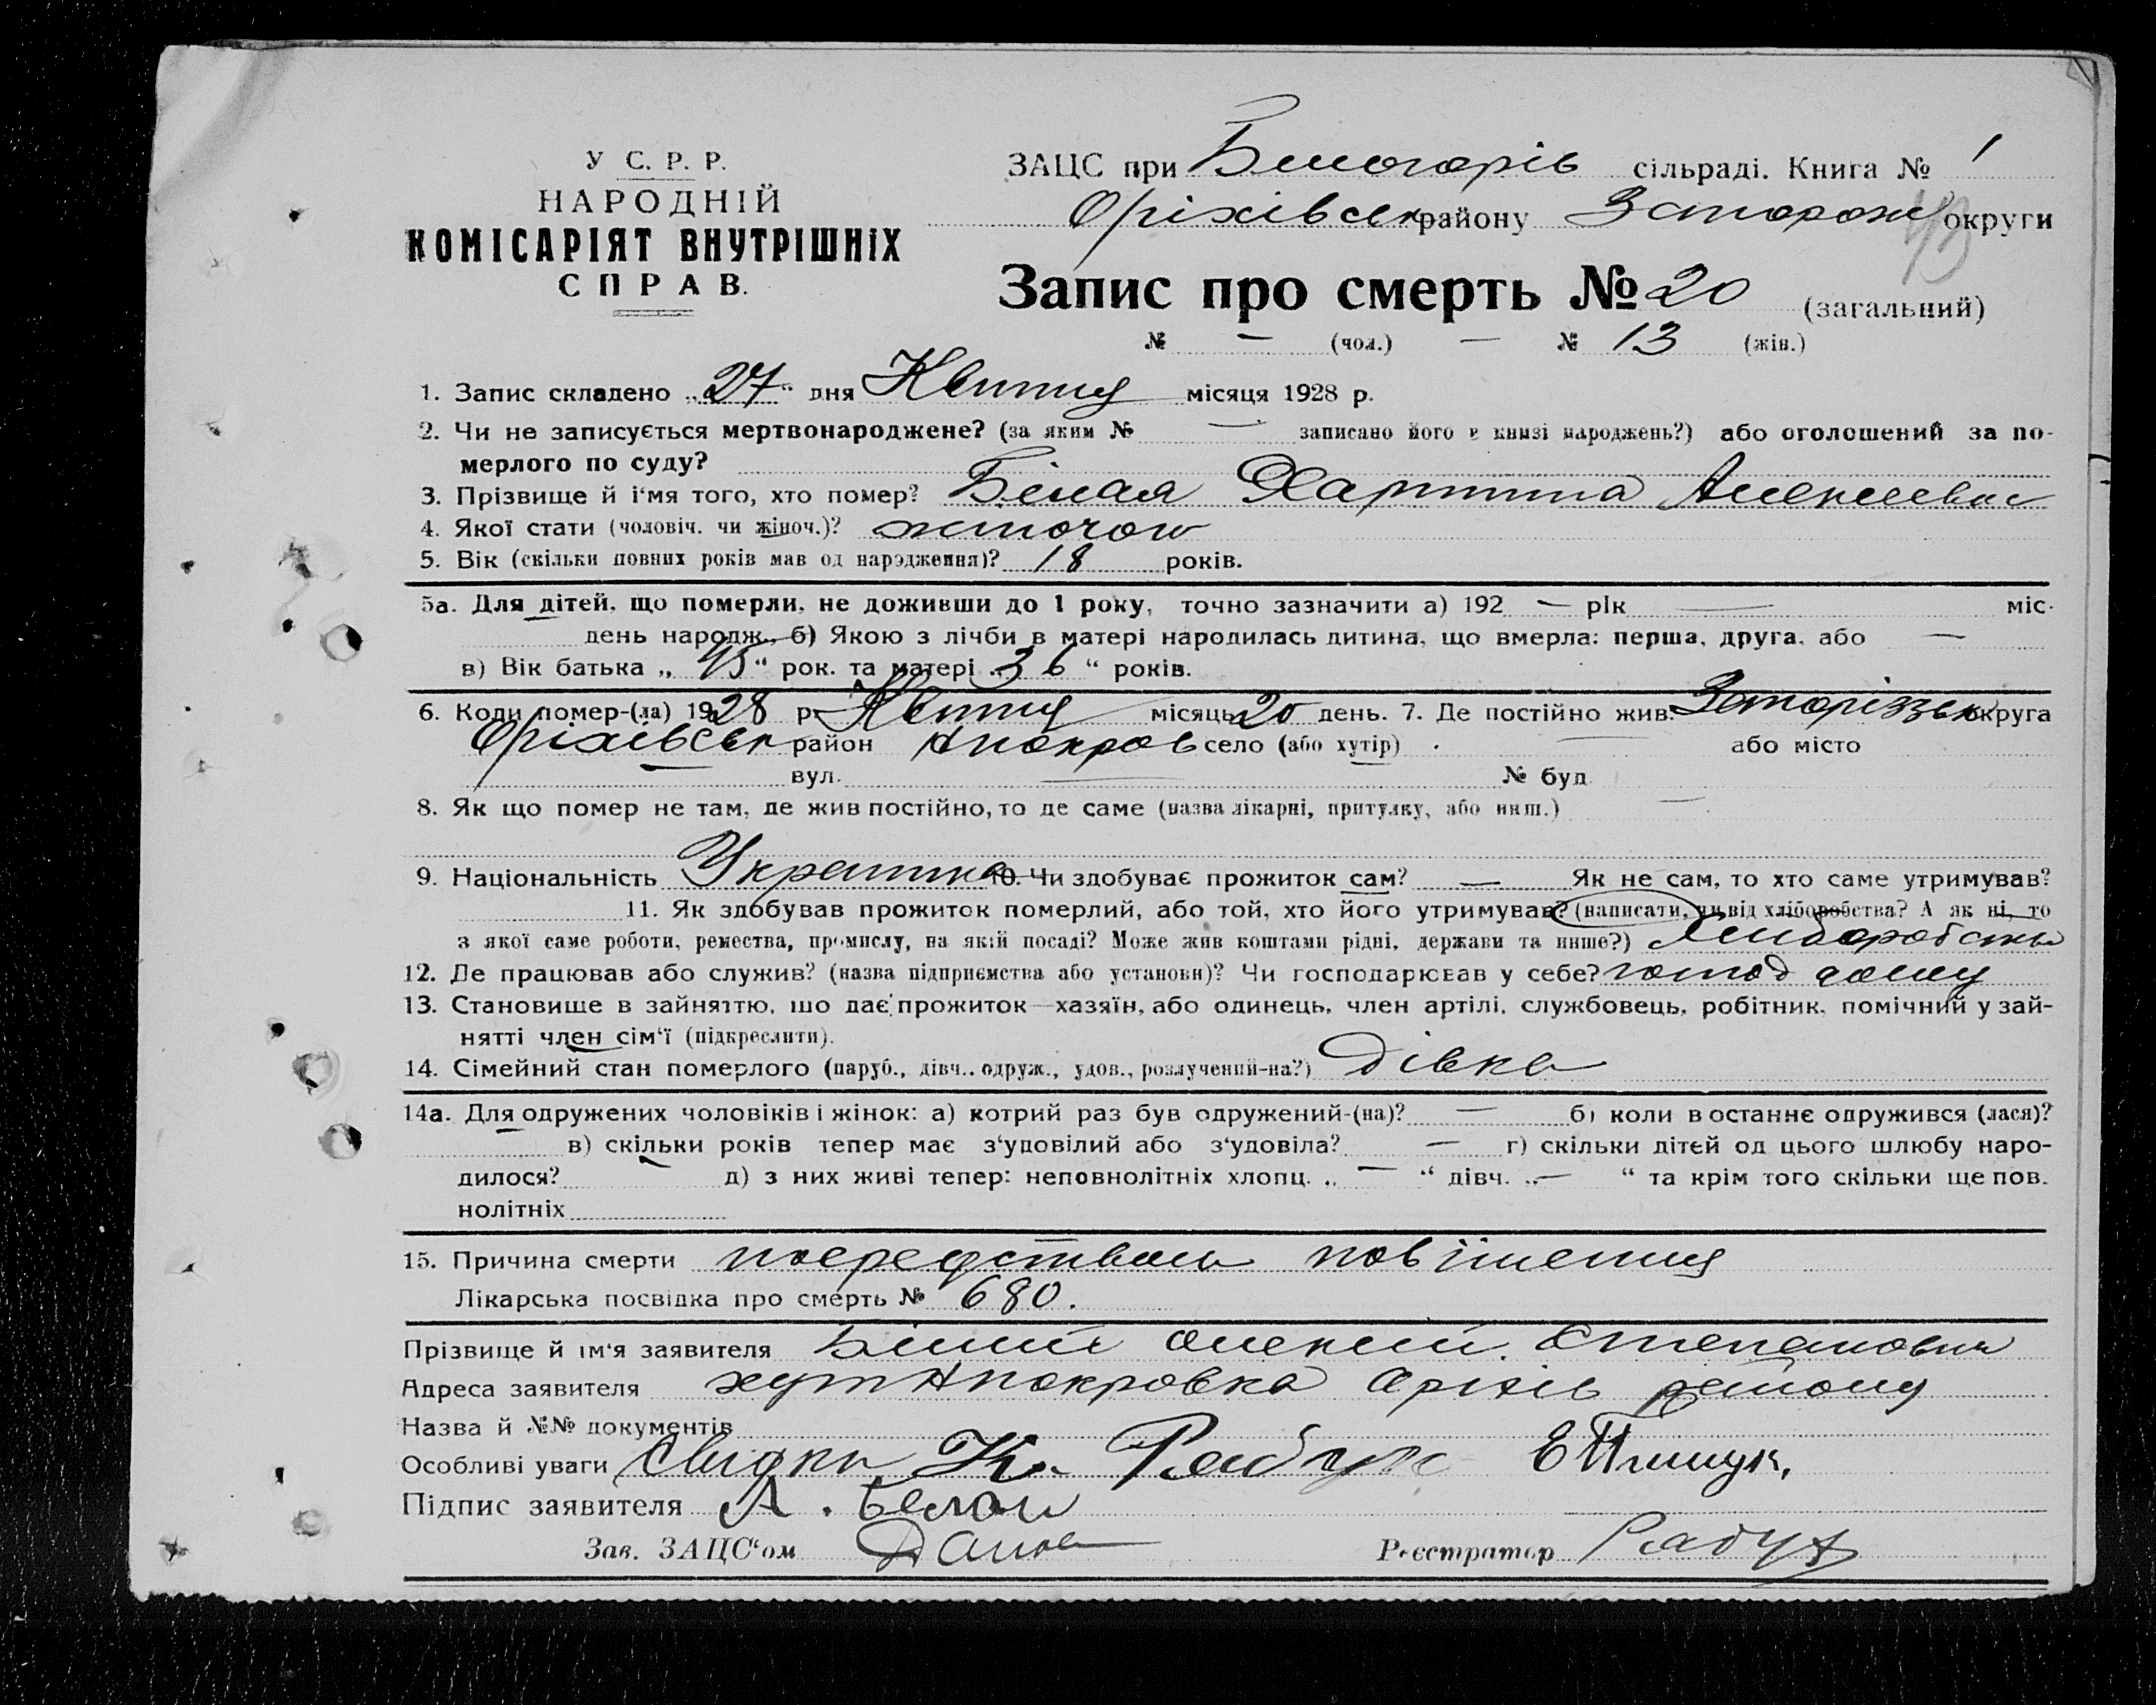 У С. Р. Р.
НАРОДНІЙ
КОМІСАРІЯТ ВНУТРІШНІХ
СПРАВ.
ЗАЦС при Білогорів сільраді. Книга № 1
Оріхівськ району Запорож округи
43
Запис про смерть № 20 (загальний)
№ — (чол.) — № 13 (жін.)
1. Запис складено „27“ дня Квітня місяця 1928 р.
2. Чи не записується мертвонароджене? (за яким № — записано його в книзі народжень?) або оголошений за по-
мерлого по суду?
3. Прізвище й і'мя того, хто помер? Білая Харитина Алексеевна
4. Якої стати (чоловіч. чи жіноч.)? жіночою
5. Вік (скільки повних років мав од народження)? 18 років.
5а. Для дітей, що померли, не доживши до 1 року, точно зазначити а) 192 — рік — міс.
день народж., б) Якою з лічби в матері народилась дитина, що вмерла: перша, друга, або —
в) Вік батька „ 45 “ рок. та матері „ 36 “ років.
6. Коли помер-(ла) 1928 р. Квітня місяць 20 день. 7. Де постійно жив. Запоріззьк округа
Оріхівськ район Нпокров село (або хутір) — або місто
— вул. — № буд.
8. Як що помер не там, де жив постійно, то де саме (назва лікарні, притулку, або инш.) —
9. Національність Українка 10. Чи здобуває прожиток сам? — Як не сам, то хто саме утримував?
11. Як здобував прожиток померлий, або той, хто його утримував? (написати, чи від хліборобства? А як ні, то
з якої саме роботи, ремества, промислу, на якій посаді? Може жив коштами рідні, держави та инше?) Хліборобства
12. Де працював або служив? (назва підприємства або установи)? Чи господарював у себе? господ дому
13. Становище в зайняттю, що дає прожиток—хазяїн, або одинець, член артілі, службовець, робітник, помічний у зай-
нятті член сім'ї (підкреслити).
14. Сімейний стан померлого (паруб., дівч., одруж., удов., розлучений-на?) Дівка
14а. Для одружених чоловіків і жінок: а) котрий раз був одружений-(на)? — б) коли в останнє одружився (лася)?
в) скільки років тепер має з'удовілий або з'удовіла? — г) скільки дітей од цього шлюбу наро-
дилося? д) з них живі тепер: неповнолітніх хлопц. „ — “ дівч. „ — “ та крім того скільки ще пов.
нолітніх
15. Причина смерти посредством повішення
Лікарська посвідка про смерть № 680.
Прізвище й ім'я заявителя Білий Олексій. Степанович
Адреса заявителя хут Нпокровка Оріхів району
Назва й №№ документів
Особливі уваги Свідки К. Рябуж Е
Підпис заявителя А. Белой
Зав. ЗАЦС'ом Реєстратор Рабуж